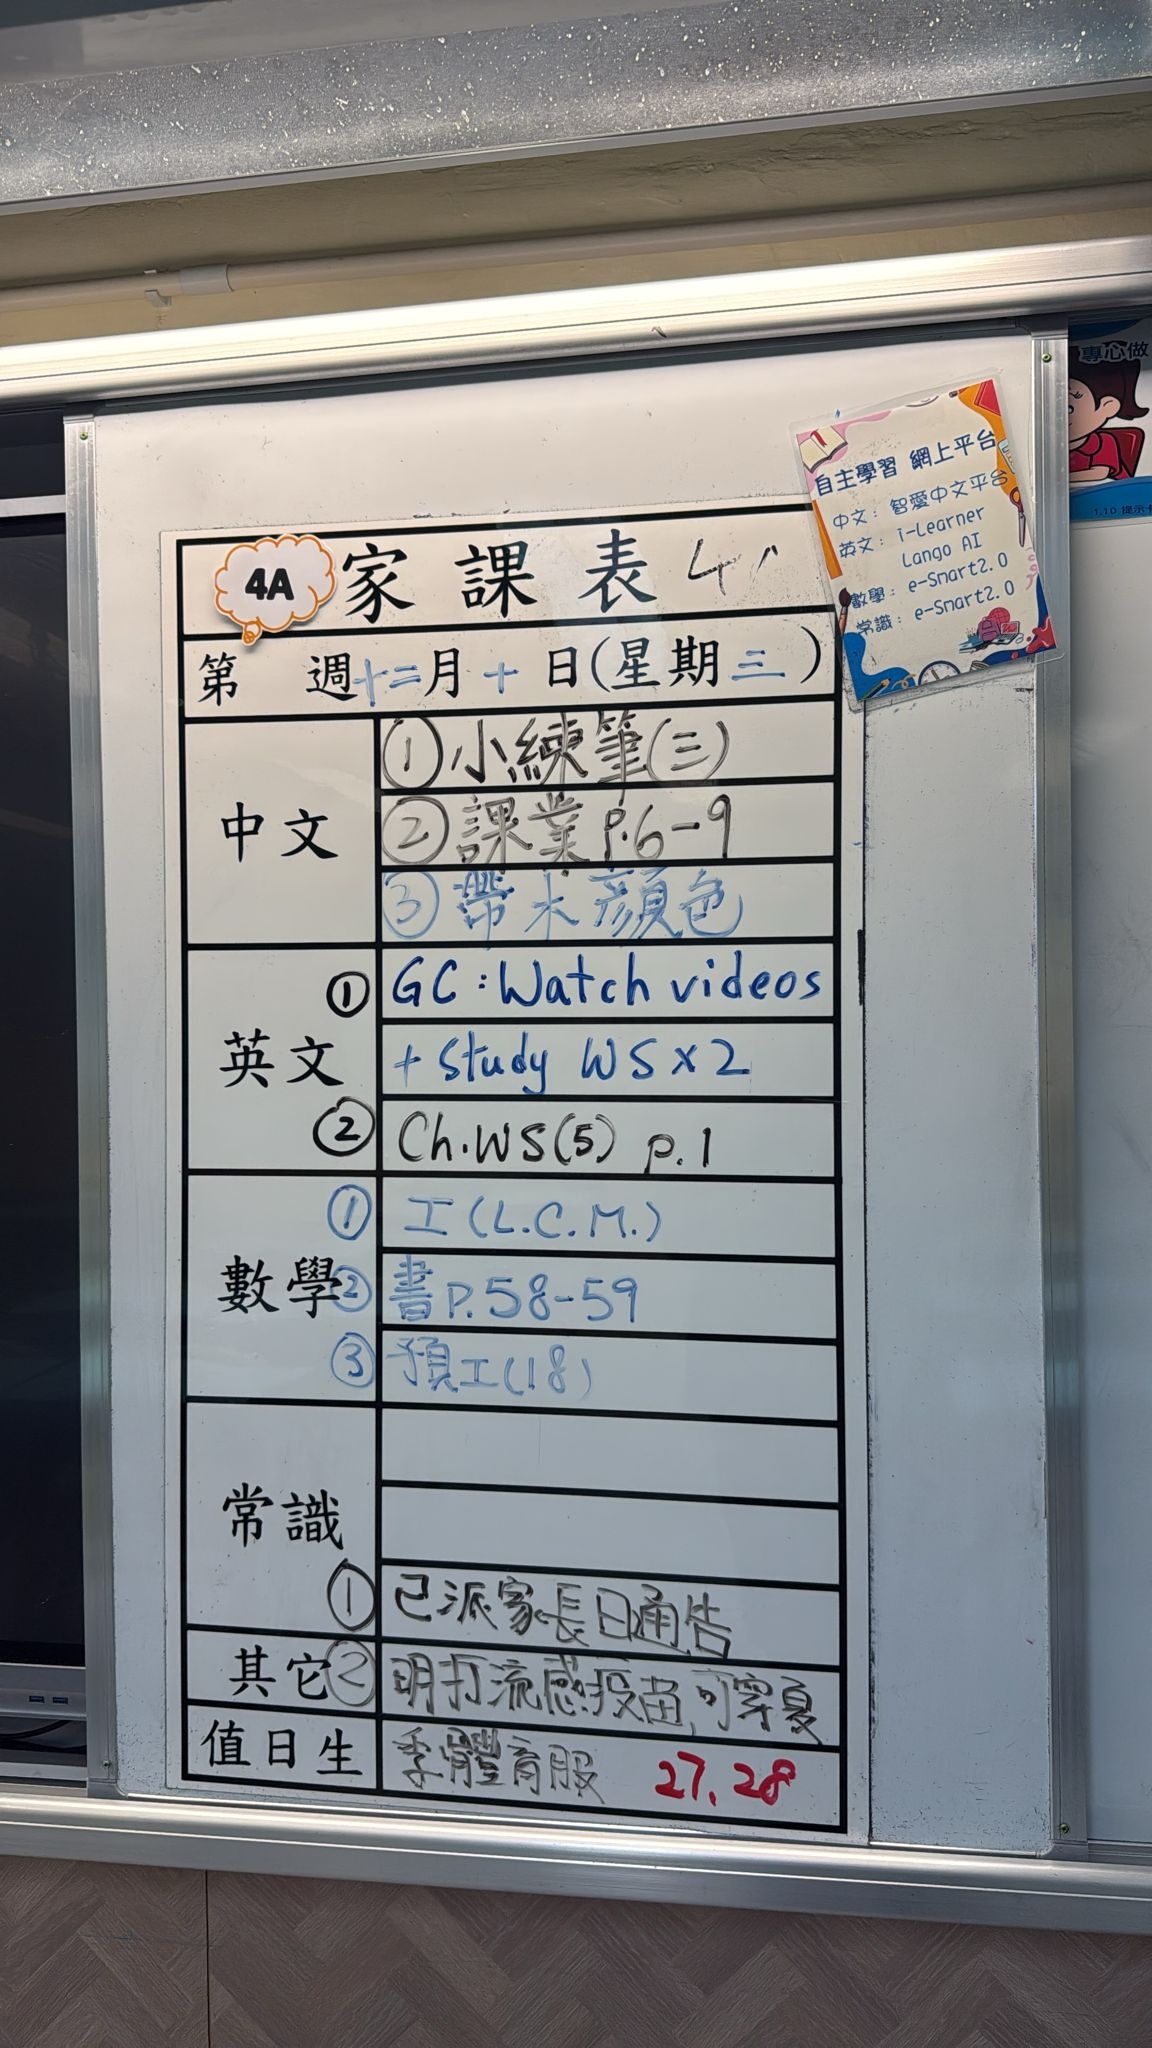 專心做
1.10 提示卡
自主學習 網上平台
中文：智愛中文平台
英文：i-Learner
Lango AI
數學：e-Smart2.0
常識：e-Smart2.0
4A 家課表
第 週十二月十日(星期三)
中文
①小練筆(三)
②課業 p.6-9
③帶水顏色
英文
① GC : Watch videos
+ study WS x 2
② Ch.WS(5) p.1
數學
① 工(L.C.M.)
② 書P.58-59
③ 預工(18)
常識
① 已派家長日通告
其它② 明打流感疫苗,可穿夏
值日生 季體育服 27.28